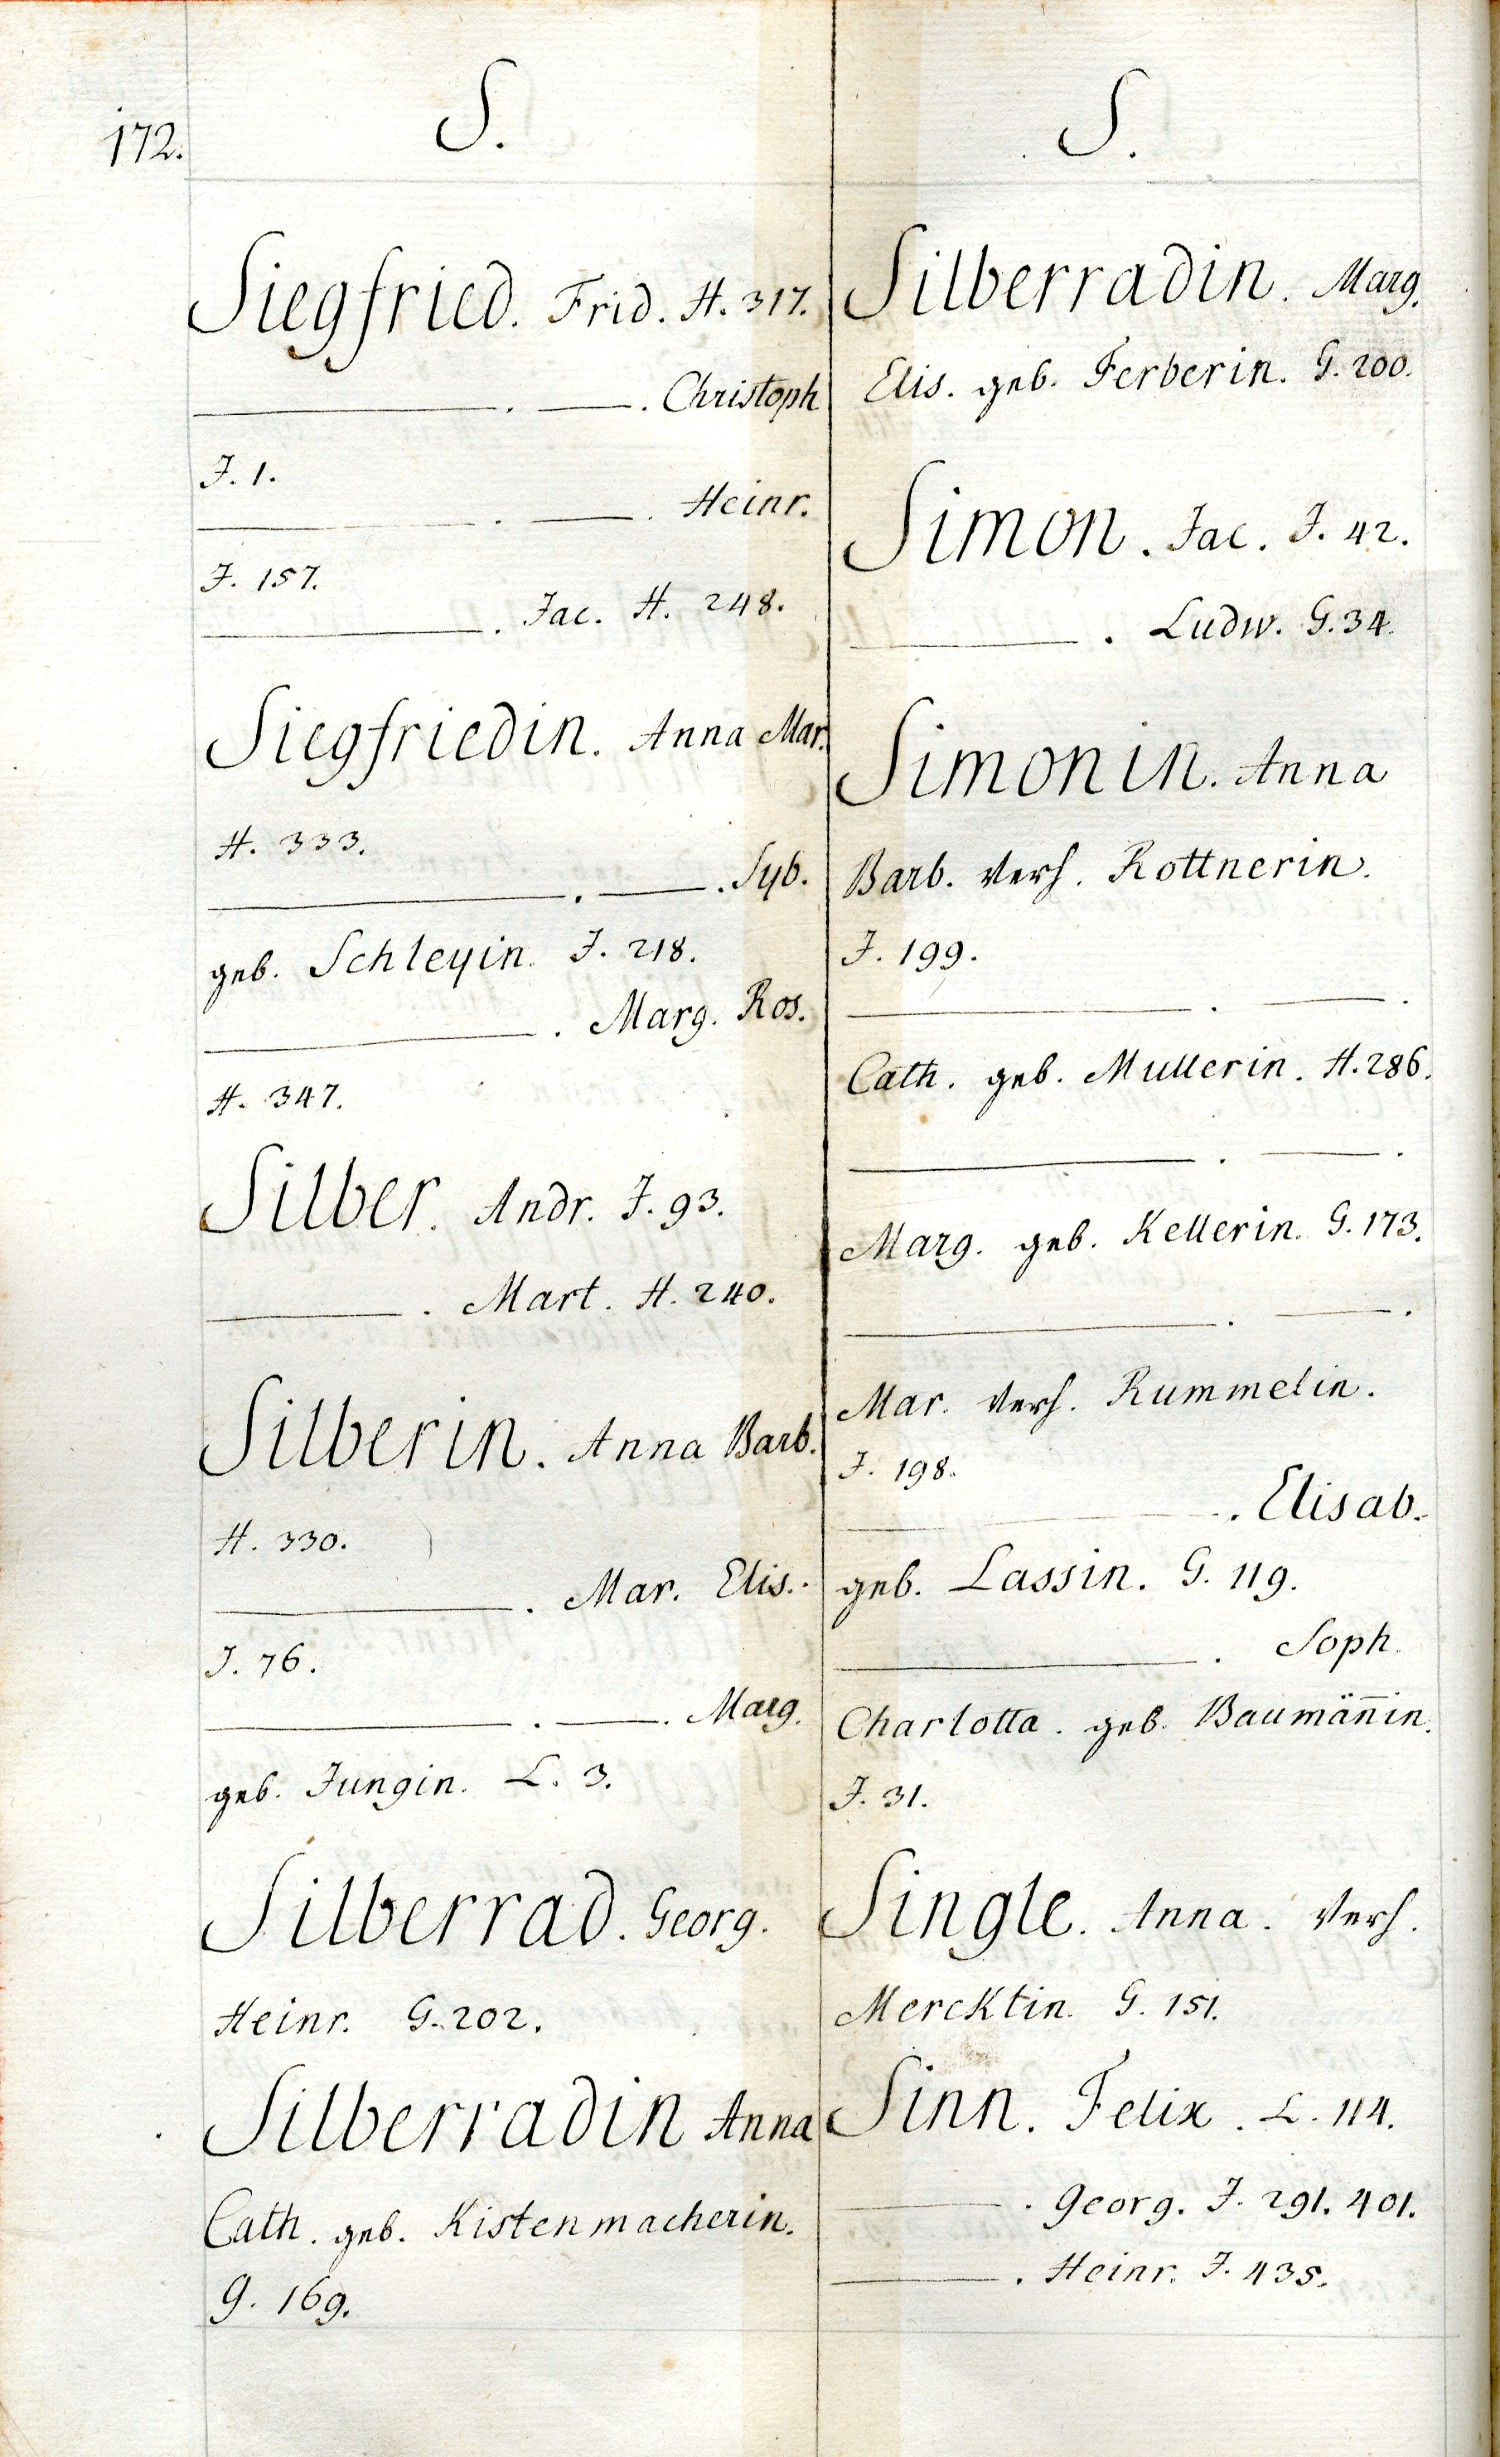 172.
S.
Siegfried. Frid. H. 317.
———. ———. Christoph
J. 1.
———. ———. Heinr.
J. 157.
———. Jac. H. 248.
Siegfriedin. Anna Mar.
H. 333.
———. ———. Syb.
geb. Schleyin. J. 218.
———. Marg. Ros.
H. 347.
Silber. Andr. J. 93.
———. Mart. H. 240.
Silberin. Anna Barb.
H. 330.
———. Mar. Elis.
J. 76.
———. ———. Marg.
geb. Jungin. L. 3.
Silberrad. Georg.
Heinr. G. 202.
Silberradin Anna
Cath. geb. Kistenmacherin.
G. 169.
S.
Silberradin. Marg.
Elis. geb. Ferberin. G. 200.
Simon. Jac. J. 42.
———. Ludw. G. 34.
Simonin. Anna
Barb. verh. Rottnerin.
J. 199.
———. ———.
Cath. geb. Mullerin. H. 286.
———. ———.
Marg. geb. Kellerin. G. 173.
———. ———.
Mar. verh. Rummelin.
J. 198.
———. Elisab.
geb. Lassin. G. 119.
———. Soph.
Charlotta. geb. Baumän̄in.
J. 31.
Single. Anna. verh.
Mercktin. G. 151.
Sinn. Felix. L. 114.
———. Georg. J. 291. 401.
———. Heinr. J. 435.